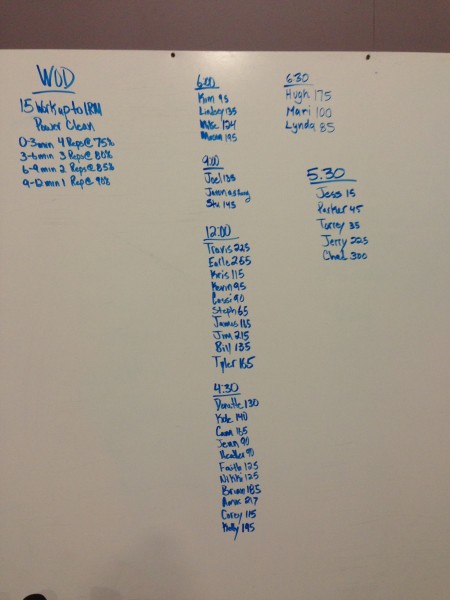 WOD
15 Work up to 1RM
Power Clean
0-3 min 4 Reps @ 75%
3-6 min 3 Reps @ 80%
6-9 min 2 Reps @ 85%
9-12 min 1 Rep @ 90%
6:00
Kim 95
Lindsey 135
Mike 124
195
9:00
Joel 135
Stu 145
12:00
Travis 225
Earle 265
Kris 115
Kevin 95
Cassi 90
Steph 65
James 165
Jim 215
Bill 135
Tyler 165
4:30
Danielle 130
Kyle 140
Cam 165
Jenn 90
Heather 90
Faith 125
Nikki 125
Brian 185
217
Corey 115
195
6:30
Hugh 175
Mari 100
Lynda 85
5:30
Jess 15
Parker 45
Torrey 35
Jerry 225
Chad 300